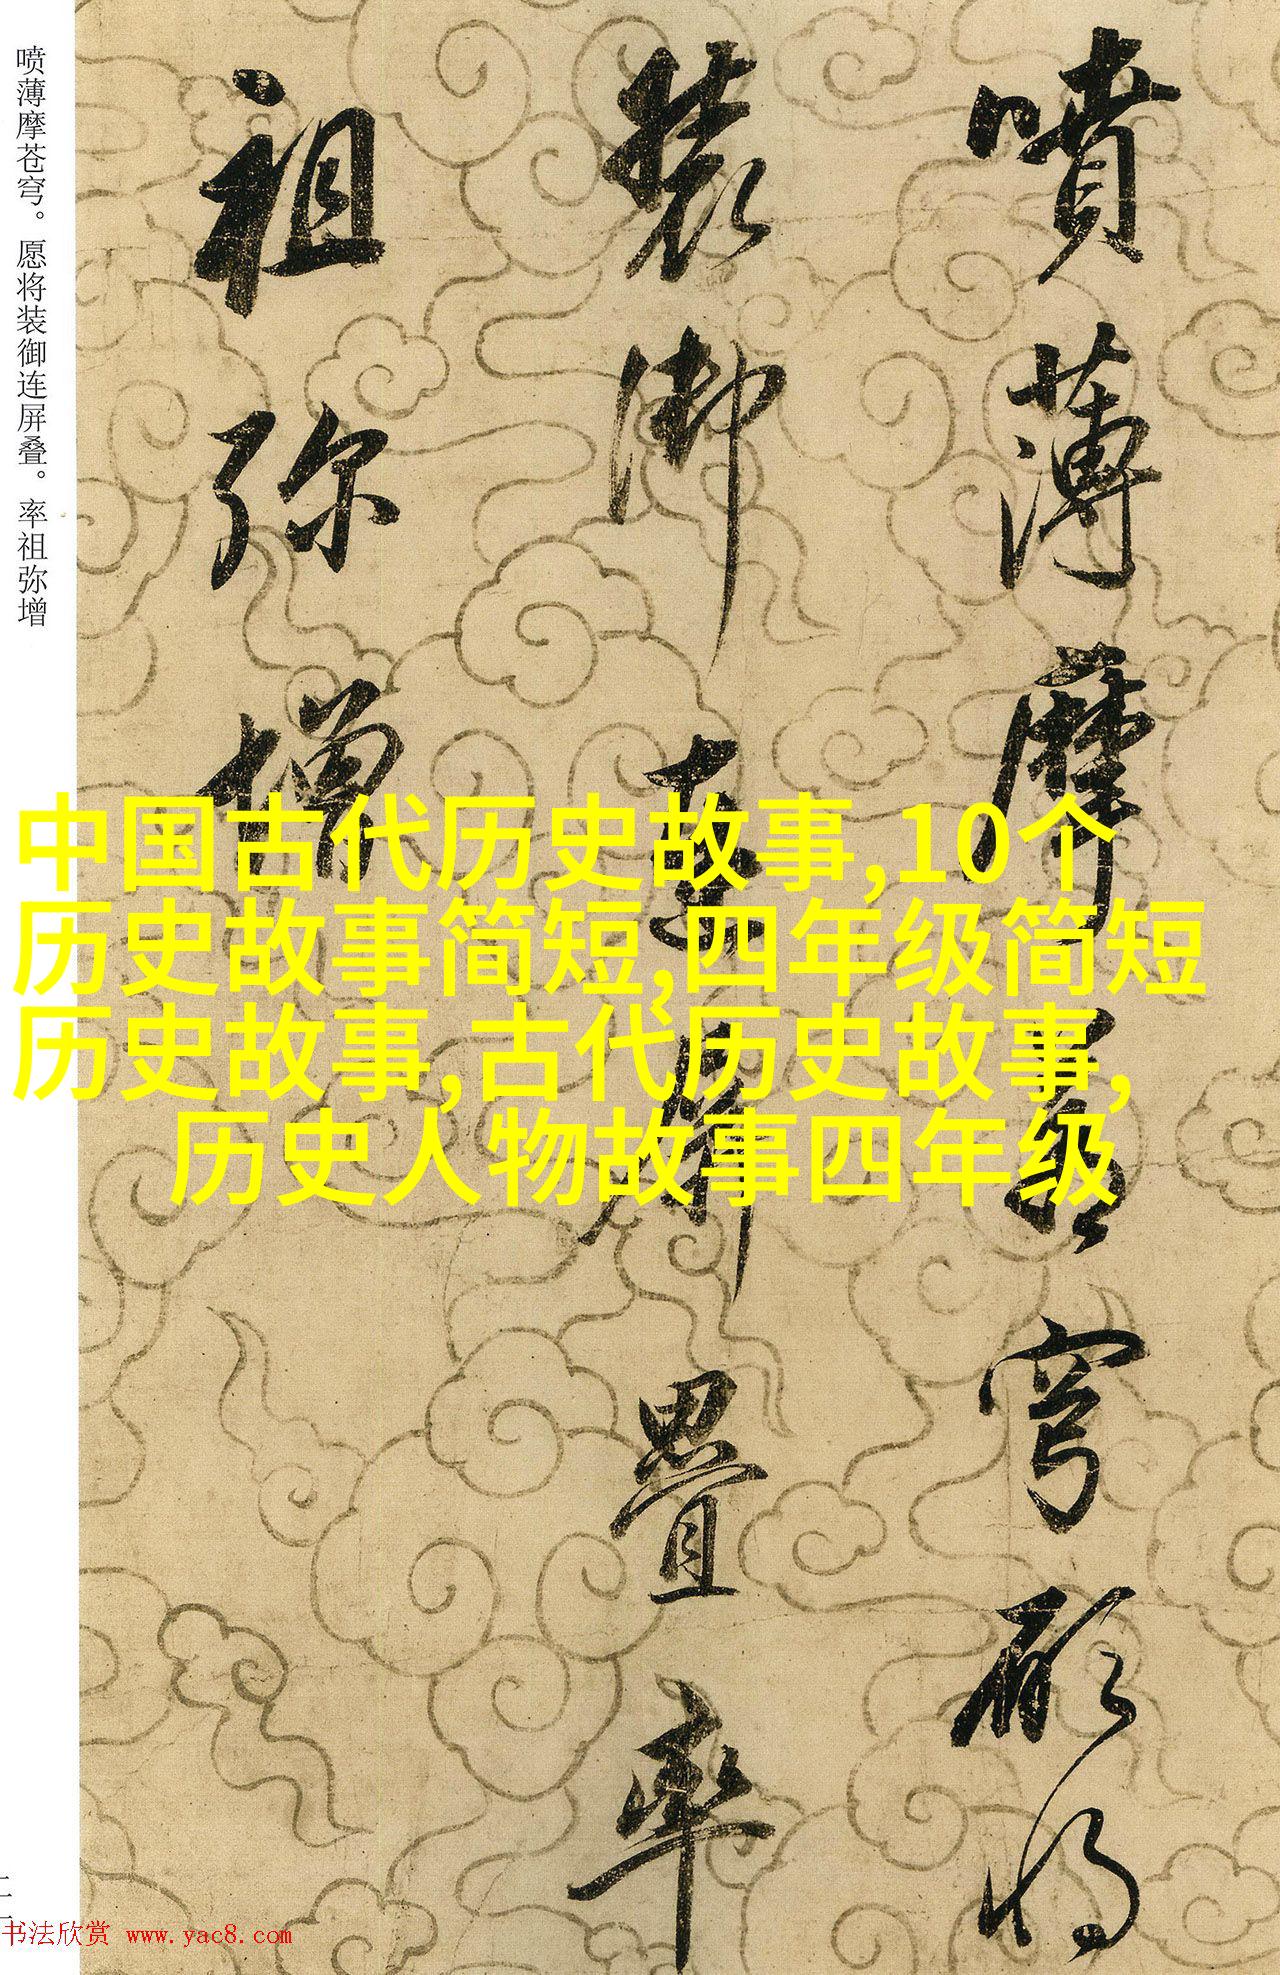 喷薄摩苍穹。愿将装御连屏叠。率祖弥增
噴薄摩蒼穹願將
裝御連屏疊率
祖弥增
中国古代历史故事,10个
历史故事简短,四年级简短
历史故事,古代历史故事,
历史人物故事四年级
书法欣赏 www.yac8.com